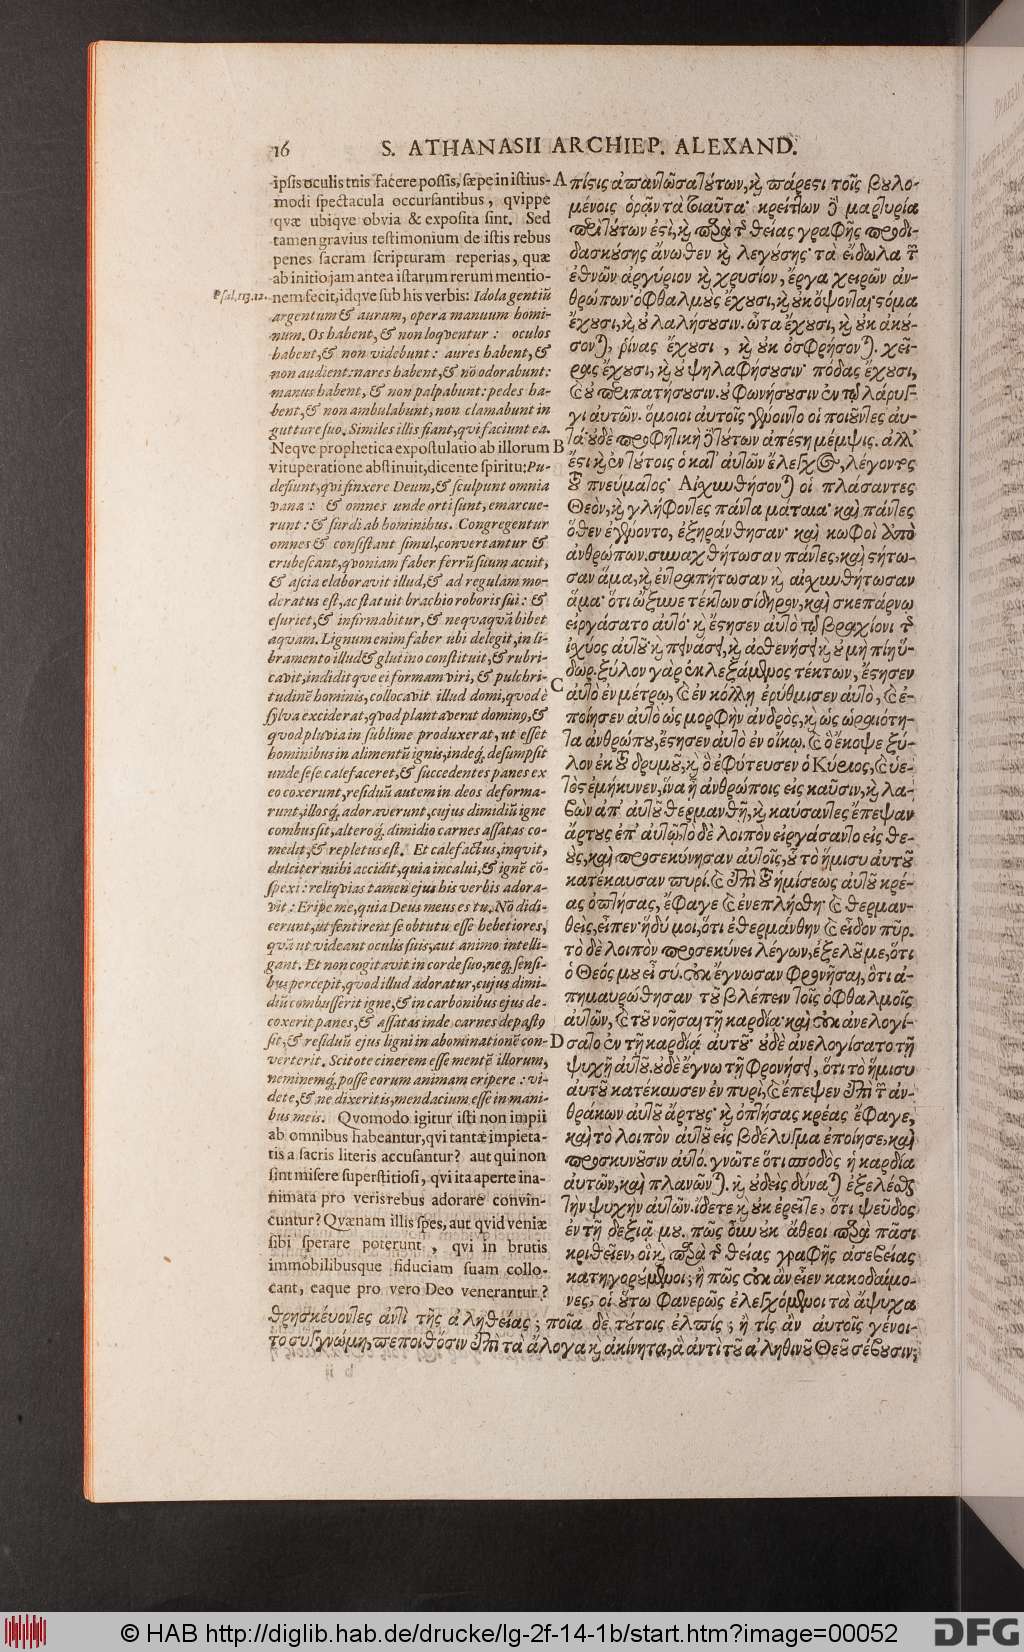 16 S. ATHANASII ARCHIEP. ALEXAND.
ipsis oculis tuis facere possis, sæpe in istius-
modi spectacula occursantibus, qvippe
qvæ ubiqve obvia & exposita sint. Sed
tamen gravius testimonium de istis rebus
penes sacram scripturam reperias, quæ
ab initio jam antea istarum rerum mentio-
Psal. 113. 12.
nem fecit, idqve sub his verbis: Idola gentiū
argentum & aurum, opera manuum homi-
num. Os habent, & non loqventur: oculos
habent, & non videbunt: aures habent, &
non audient: nares habent, & nō odorabunt:
manus habent, & non palpabunt: pedes ha-
bent, & non ambulabunt, non clamabunt in
gutture suo. Similes illis fiant, qvi faciunt ea.
Neqve prophetica expostulatio ab illorum
vituperatione abstinuit, dicente spiritu: Pu-
defiunt, qvi finxere Deum, & sculpunt omnia
vana: & omnes unde orti sunt, emarcue-
runt: & surdi ab hominibus. Congregentur
omnes & consistant simul, convertantur &
erubescant, qvoniam faber ferrū suum acuit,
& ascia elaboravit illud, & ad regulam mo-
deratus est, ac statuit brachio roboris sui: &
esuriet, & infirmabitur, & neqvaqvā bibet
aqvam. Lignum enim faber ubi delegit, in li-
bramento illud & glutino constituit, & rubri-
cavit, indiditqve ei formam viri, & pulchri-
tudinē hominis, collocavit illud domi, qvod è
sylva exciderat, qvod plantaverat dominꝰ, &
qvod pluvia in sublime produxerat, ut esset
hominibus in alimentū ignis, indeq́; desumpsit
unde sese calefaceret, & succedentes panes ex
eo coxerunt, residuū autem in deos deforma-
runt, illosq́; adoraverunt, cujus dimidiū igne
combussit, alteroq́; dimidio carnes assatas co-
medit, & repletus est. Et calefactus, inqvit,
dulciter mihi accidit, quia incalui, & ignē cō-
spexi: reliqvias tamen ejus his verbis adora-
vit: Eripe me, quia Deus meus es tu, Nō didi-
cerunt, ut sentirent se obtutu esse hebetiores,
qvā ut videant oculis suis, aut animo intelli-
gant. Et non cogitavit in corde suo, neq́; sensi-
bus percepit, qvod illud adoratur, cujus dimi-
diū combusserit igne, & in carbonibus ejus de-
coxerit panes, & assatas inde carnes depastꝰ
sit, & residuū ejus ligni in abominationē con-
verterit. Scitote cinerem esse mentē illorum,
neminemq́; posse eorum animam eripere: vi-
dete, & ne dixeritis, mendacium esse in mani-
bus meis. Qvomodo igitur isti non impii
ab omnibus habeantur, qvi tantæ impieta-
tis a sacris literis accusantur? aut qui non
sint misere superstitiosi, qvi ita aperte ina-
nimata pro veris rebus adorare convin-
cuntur? Qvænam illis spes, aut qvid veniæ
sibi sperare poterunt, qvi in brutis
immobilibusque fiduciam suam collo-
cant, eaque pro vero Deo venerantur?
A
B
C
D
πίστις ἀπαντῶσα τούτων, καὶ πάρεστι τοῖς βουλο-
μένοις ὁρᾷν τὰ τοιαῦτα· κρείττων δὲ μαρτυρία
περὶ τούτων ἐστὶ, καὶ παρὰ τῆς θείας γραφῆς προδι-
δασκούσης ἄνωθεν καὶ λεγούσης· τὰ εἴδωλα τῶν
ἐθνῶν ἀργύριον καὶ χρυσίον, ἔργα χειρῶν ἀν-
θρώπων· ὀφθαλμοὺς ἔχουσι, καὶ οὐκ ὄψονται· στόμα
ἔχουσι, καὶ οὐ λαλήσουσιν. ὦτα ἔχουσι, καὶ οὐκ ἀκού-
σονται, ῥίνας ἔχουσι, καὶ οὐκ ὀσφρήσονται. χεῖ-
ρας ἔχουσι, καὶ οὐ ψηλαφήσουσιν· πόδας ἔχουσι,
καὶ οὐ περιπατήσουσιν. οὐ φωνήσουσιν ἐν τῷ λάρυγ-
γι αὐτῶν. ὅμοιοι αὐτοῖς γένοιντο οἱ ποιοῦντες αὐ-
τά· οὐδὲ προφητικὴ δὲ τούτων ἀπέστη μέμψις. ἀλλ'
ἔστι καὶ ἐν τούτοις ὁ κατ' αὐτῶν ἔλεγχος, λέγοντος
τοῦ πνεύματος· Αἰσχυνθήσονται οἱ πλάσαντες
Θεὸν, καὶ γλύφοντες πάντα μάταια· καὶ πάντες
ὅθεν ἐγένοντο, ἐξηράνθησαν· καὶ κωφοὶ ἀπὸ
ἀνθρώπων. συναχθήτωσαν πάντες, καὶ στήτω-
σαν ἅμα, καὶ ἐντραπήτωσαν καὶ αἰσχυνθήτωσαν
ἅμα· ὅτι ὤξυνε τέκτων σίδηρον, καὶ σκεπάρνῳ
εἰργάσατο αὐτό· καὶ ἔστησεν αὐτὸ τῷ βραχίονι τῆς
ἰσχύος αὐτοῦ· καὶ πεινάσει, καὶ ἀσθενήσει καὶ οὐ μὴ πίῃ ὕ-
δωρ. ξύλον γὰρ ἐκλεξάμενος τέκτων, ἔστησεν
αὐτὸ ἐν μέτρῳ, καὶ ἐν κόλλῃ ἐρύθμισεν αὐτὸ, καὶ ἐ-
ποίησεν αὐτὸ ὡς μορφὴν ἀνδρὸς, καὶ ὡς ὡραιότη-
τα ἀνθρώπου, ἔστησεν αὐτὸ ἐν οἴκῳ. καὶ ὃ ἔκοψε ξύ-
λον ἐκ τοῦ δρυμοῦ, καὶ ὃ ἐφύτευσεν ὁ Κύριος, καὶ ὑε-
τὸς ἐμήκυνεν, ἵνα ᾖ ἀνθρώποις εἰς καῦσιν, καὶ λα-
βὼν ἀπ' αὐτοῦ θερμανθῇ, καὶ καύσαντες ἔπεψαν
ἄρτους ἐπ' αὐτῷ, τὸ δὲ λοιπὸν εἰργάσαντο εἰς θε-
οὺς, καὶ προσεκύνησαν αὐτοῖς, οὗ τὸ ἥμισυ αὐτοῦ
κατέκαυσαν πυρί. καὶ ἐπὶ τοῦ ἡμίσεως αὐτοῦ κρέ-
ας ὀπτήσας, ἔφαγε καὶ ἐνεπλήσθη· καὶ θερμαν-
θεὶς, εἶπεν· ἡδύ μοι, ὅτι ἐθερμάνθην καὶ εἶδον πῦρ.
τὸ δὲ λοιπὸν προσεκύνει λέγων, ἐξελοῦ με, ὅτι
ὁ Θεός μου εἶ σύ. οὐκ ἔγνωσαν φρονῆσαι, ὅτι ἀ-
πημαυρώθησαν τοῦ βλέπειν τοῖς ὀφθαλμοῖς
αὐτῶν, καὶ τοῦ νοῆσαι τῇ καρδίᾳ· καὶ οὐκ ἀνελογί-
σατο ἐν τῇ καρδίᾳ αὐτοῦ· οὐδὲ ἀνελογίσατο τῇ
ψυχῇ αὐτοῦ. οὐδὲ ἔγνω τῇ φρονήσει, ὅτι τὸ ἥμισυ
αὐτοῦ κατέκαυσεν ἐν πυρὶ, καὶ ἔπεψεν ἐπὶ τῶν ἀν-
θράκων αὐτοῦ ἄρτους· καὶ ὀπτήσας κρέας ἔφαγε,
καὶ τὸ λοιπὸν αὐτοῦ εἰς βδέλυγμα ἐποίησε, καὶ
προσκυνοῦσιν αὐτό. γνῶτε ὅτι σποδὸς ἡ καρδία
αὐτῶν, καὶ πλανῶνται. καὶ οὐδεὶς δύναται ἐξελέσθαι
τὴν ψυχὴν αὐτῶν. ἴδετε καὶ οὐκ ἐρεῖτε, ὅτι ψεῦδος
ἐν τῇ δεξιᾷ μου. πῶς οὖν οὐκ ἄθεοι παρὰ πᾶσι
κριθεῖεν, οἱ καὶ παρὰ τῆς θείας γραφῆς ἀσεβείας
κατηγορούμενοι; ἢ πῶς οὐκ ἂν εἶεν κακοδαίμο-
νες, οἱ οὕτω φανερῶς ἐλεγχόμενοι τὰ ἄψυχα
θρησκεύοντες ἀντὶ τῆς ἀληθείας; ποία δὲ τούτοις ἐλπίς; ἢ τίς ἂν αὐτοῖς γένοι-
το συγγνώμη, πεποιθόσιν ἐπὶ τὰ ἄλογα καὶ ἀκίνητα, ἃ ἀντὶ τοῦ ἀληθινοῦ Θεοῦ σέβουσιν;
© HAB http://diglib.hab.de/drucke/lg-2f-14-1b/start.htm?image=00052
DFG